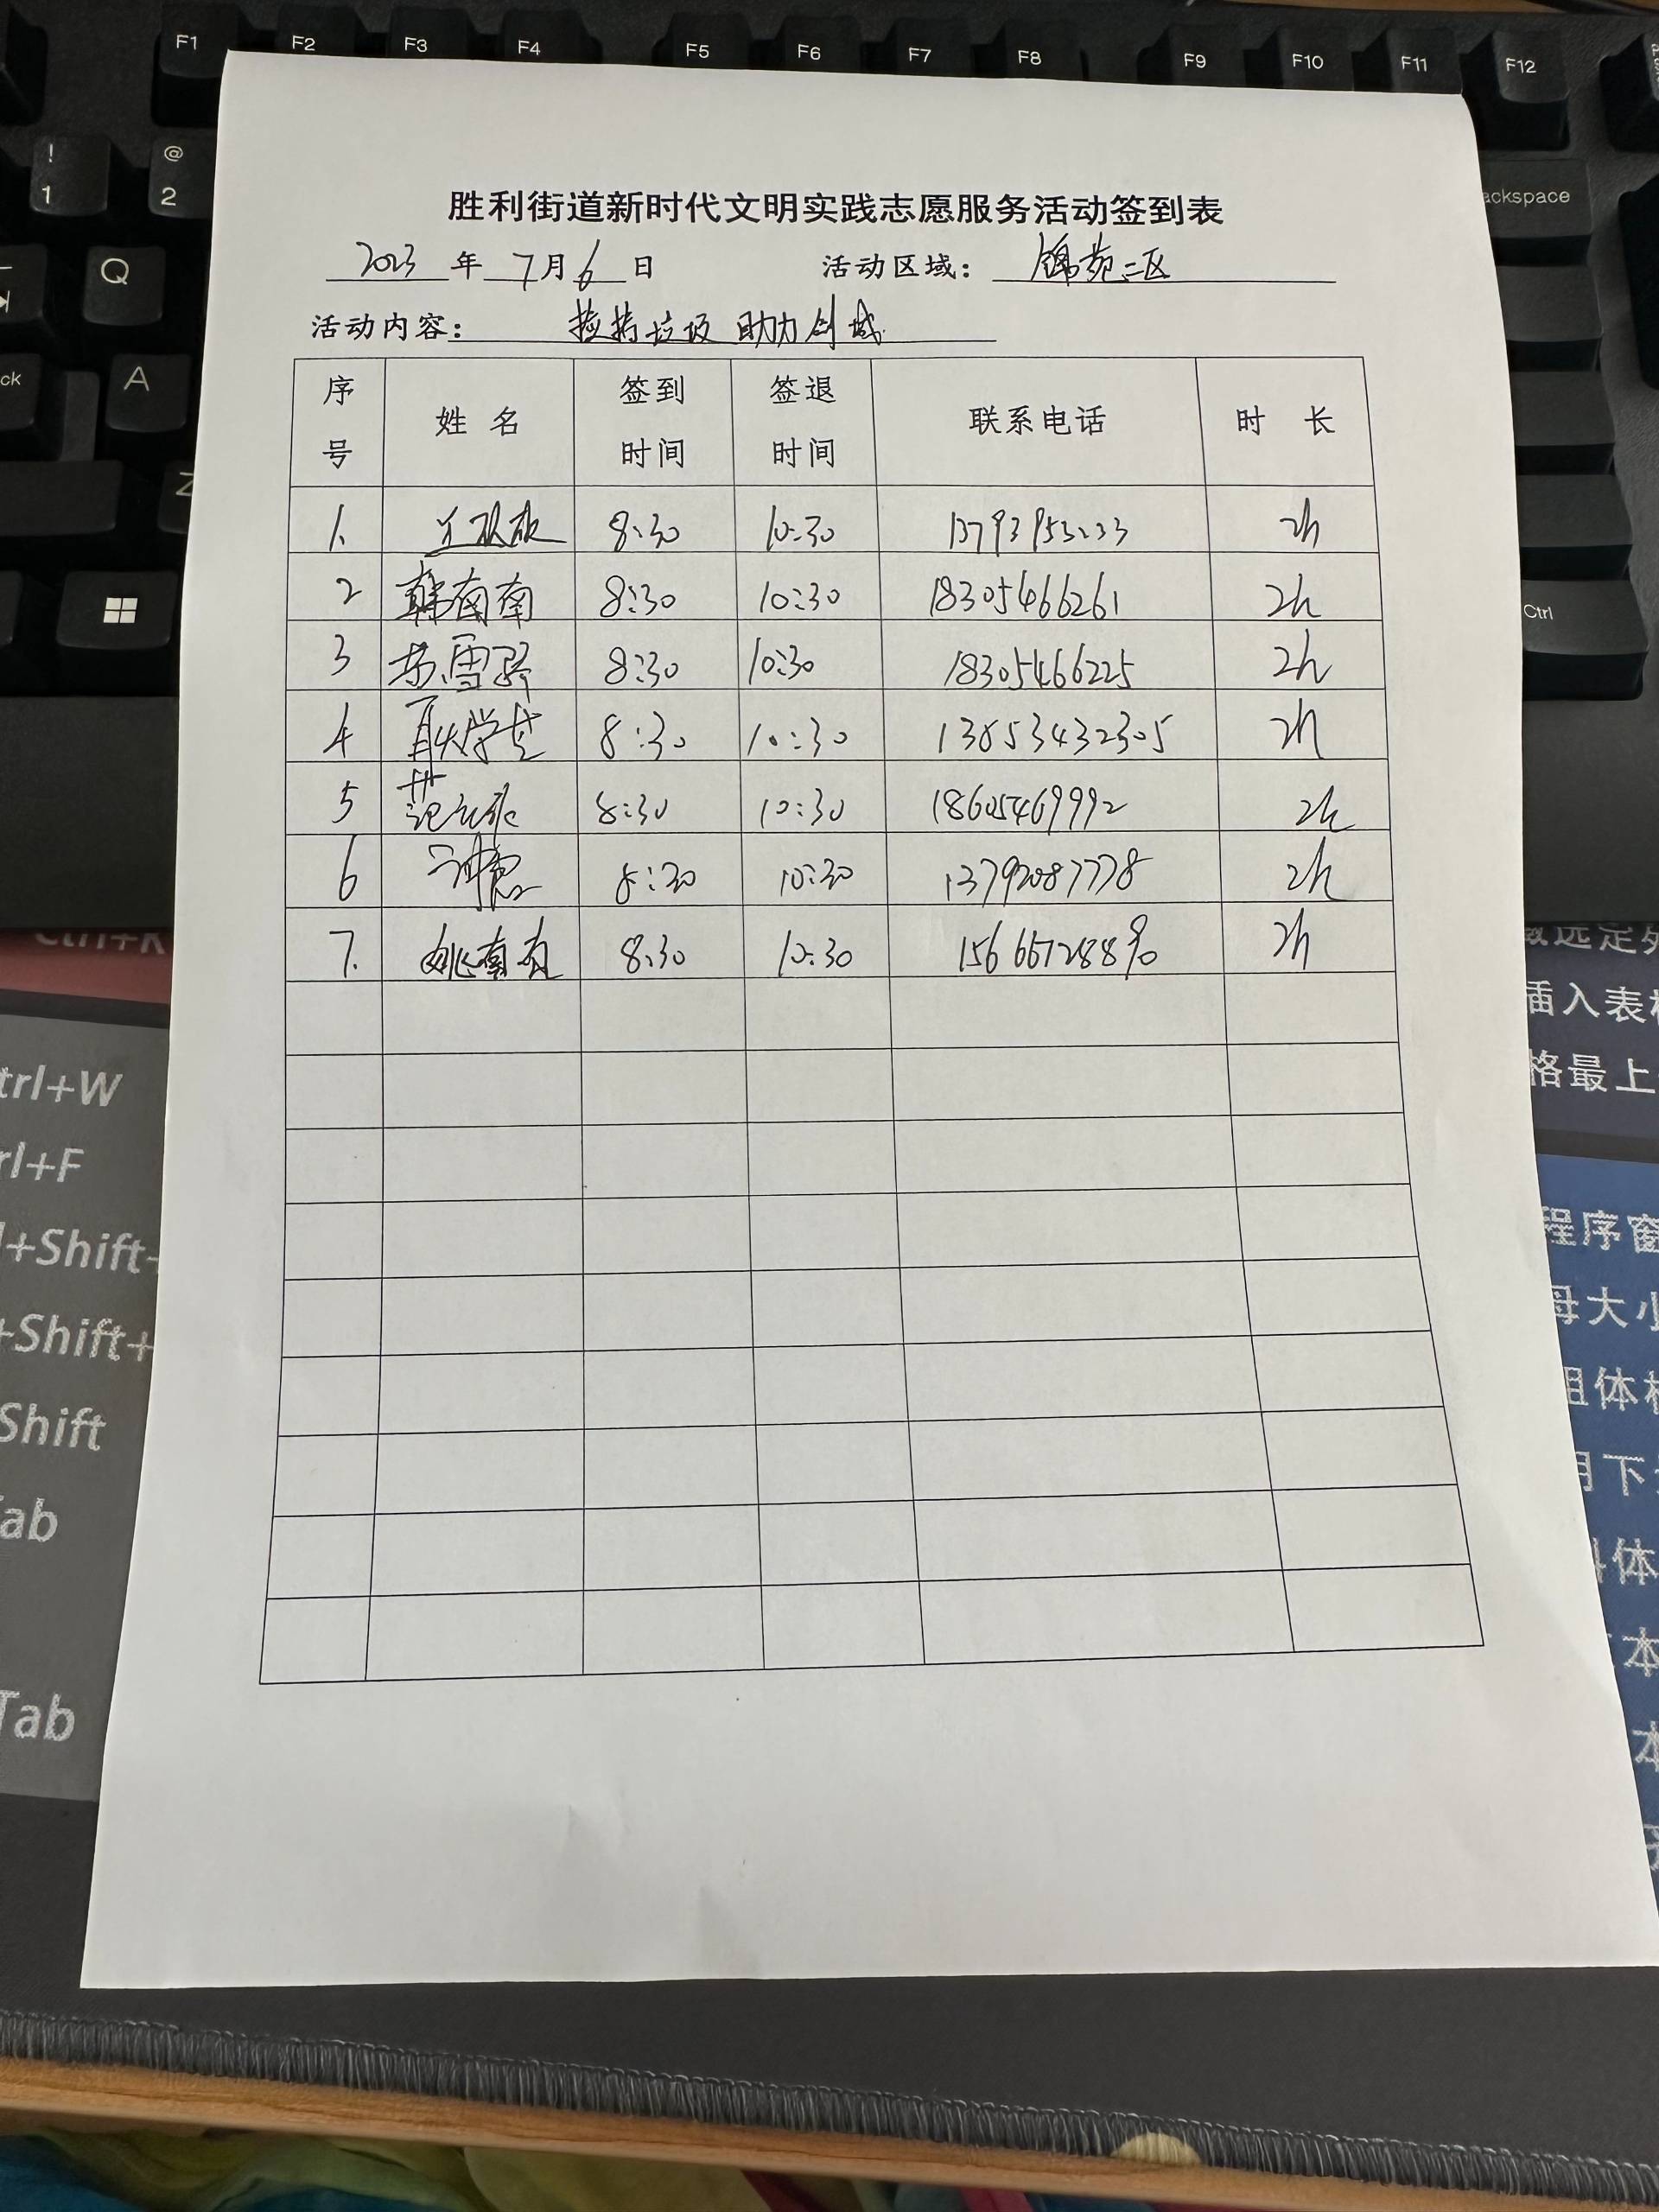 F1 F2 F3 F4 F5 F6 F7 F8 F9 F10 F11 F12
! 1 @ 2
ackspace
Q
ck A
Z
Ctrl
胜利街道新时代文明实践志愿服务活动签到表
2023 年 7月 6 日 活动区域： 锦苑二区
活动内容： 捡拾垃圾 助力创城
序号 姓 名 签到时间 签退时间 联系电话 时 长
1. 8:30 10:30 2h
2 韩南南 8:30 10:30 18305466261 2h
3 苏雪 8:30 10:30 18305466225 2h
4 耿学 8:30 10:30 13853432305 2h
5 范 8:30 10:30 18605469992 2h
6 8:30 10:30 13792087778 2h
7. 姚南南 8:30 10:30 15666728890 2h
Ctrl+R
trl+W
rl+F
+Shift-
+Shift+
Shift
Tab
Tab
选定列
插入表格
格最上
程序窗
母大小
组体
用下
体
本
本